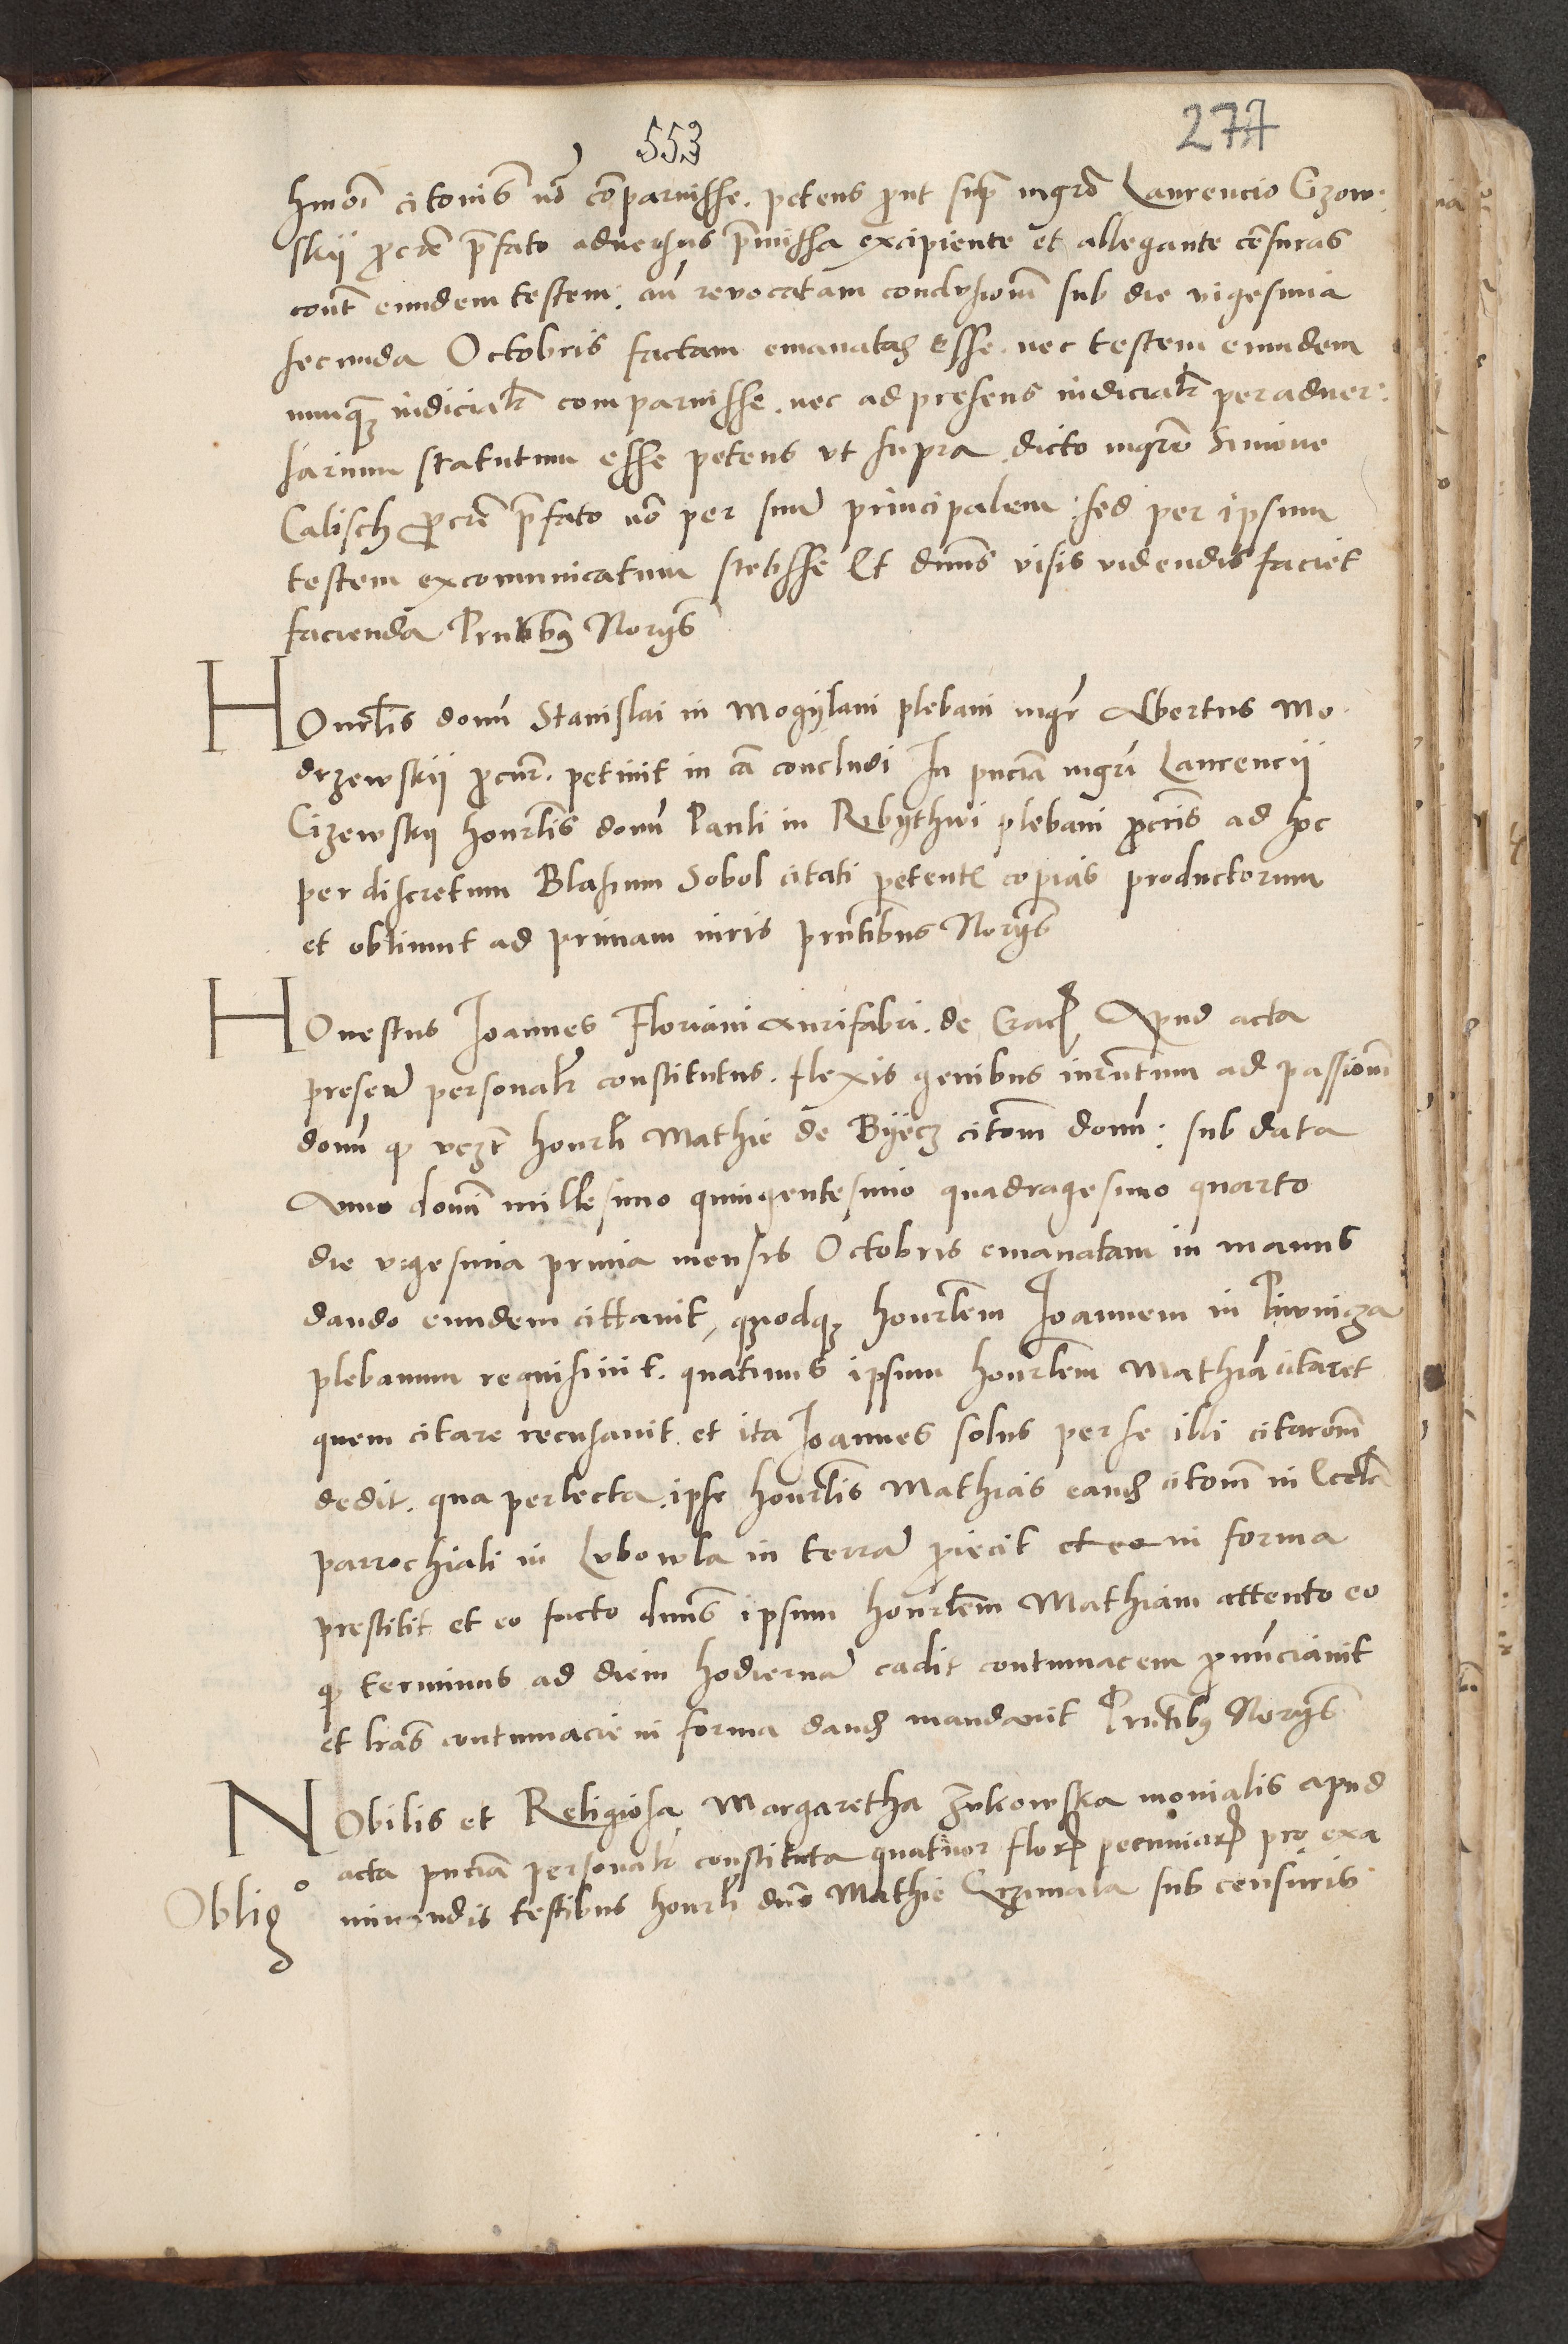 553
277
hmōi citonis nō cōparuisse. petens put sup mgrō Laurencio Czow
skij pcrē pfato adversus pmissa excipiente et allegante cēsuras
cont eundem testem: an revocatam conclusionē sub die vigesima
secunda Octobris factam emanatas esse. nec testem eundem
nunqz iudicialr comparuisse. nec ad presens iudicialr per adver
sarium statutum esse petens vt supra dicto mgrō Simone
Calisch pcrē pfato nō per suū principalem: sed per ipsum
testem excomunicatum Et dnus visis videndis faciet
facienda Prntibus Norijs
HOnrlis domi Stanislai in Mogijlani plebani mgr Albertus Mo
drzewskij pcur. petiuit in cā concludi In pnciā mgri Laurencij
Cizewskij honrlis domi Pauli in Rbythwi plebani pcris ad hoc
per discretum Blasium Sobol citati petente copias productorum
et obtinuit ad primam iuris prntibus Norijs
HOnestus Joannes Floriani Aurifabri. de Crac Apud acta
presenū personalr constitutus. flexis genibus iurūtum ad passionē
domi q vczt honrli Mathie de Byecz citonē domi: sub data
Anno domi millesimo quingentesimo quadragesimo quarto
die vigesima prima mensis Octobris emanatam in manus
dando eundem cittavit, quodqz honrlem Joannem in Piwnicza
plebanum requisiuit. quatinus ipsum honrlem Mathiā citaret
quem citare recusauit. et ita Joannes solus per se illi citaconē
dedit. qua perlecta. ipse honrlis Mathias eandē citonē in Eccla
parrochiali in Lubowla in terrā piecit et eo in forma
prestitit et eo facto dnus ipsum honrlem Mathiam attento eo
q terminus ad diem hodiernā cadit contumacem pnunciauit
et lras contumacie in forma dandas mandauit Prntibus Norijs
NObilis et Religiosa Margaretha Zukowska monialis apud
acta pnciā personalr constituta quatuor flor pecuniar pro exa
minandis testibus honrli dno Mathie Grzimala sub censuris
Obligo